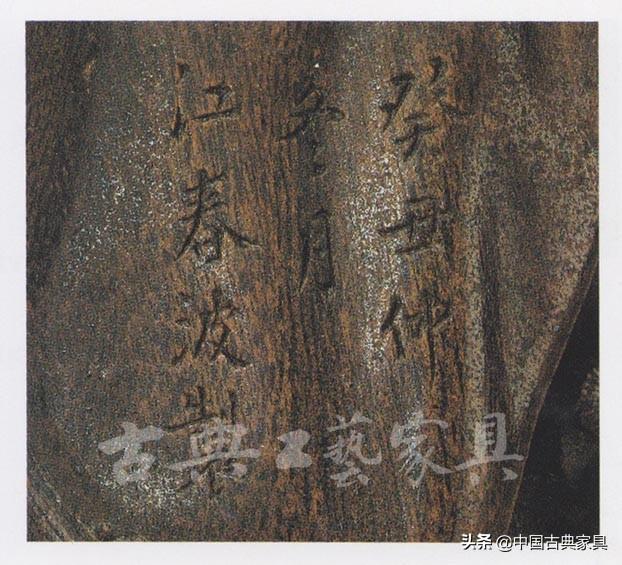 癸丑仲
冬月
江春波製
古典工藝家具
头条 @中国古典家具